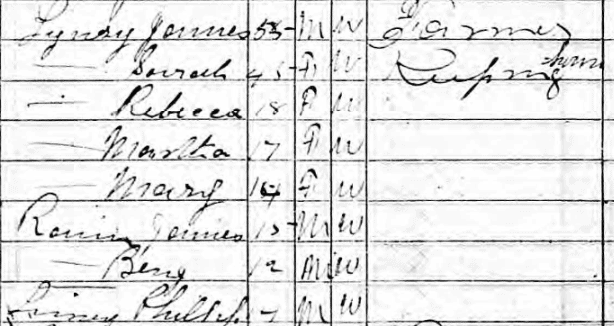 James 55 M W Farmer
— Sarah 45 F W Keeping home
— Rebecca 18 F W
— Martha 17 F W
— Mary 14 F W
James 15 M W
— Benj 12 M W
Philip 7 M W